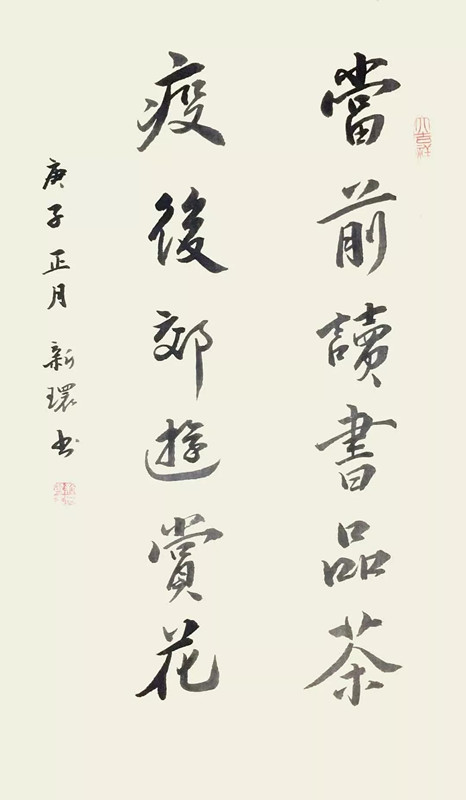 當前讀書品茶
疫後郊遊賞花
庚子正月新環书
大吉祥